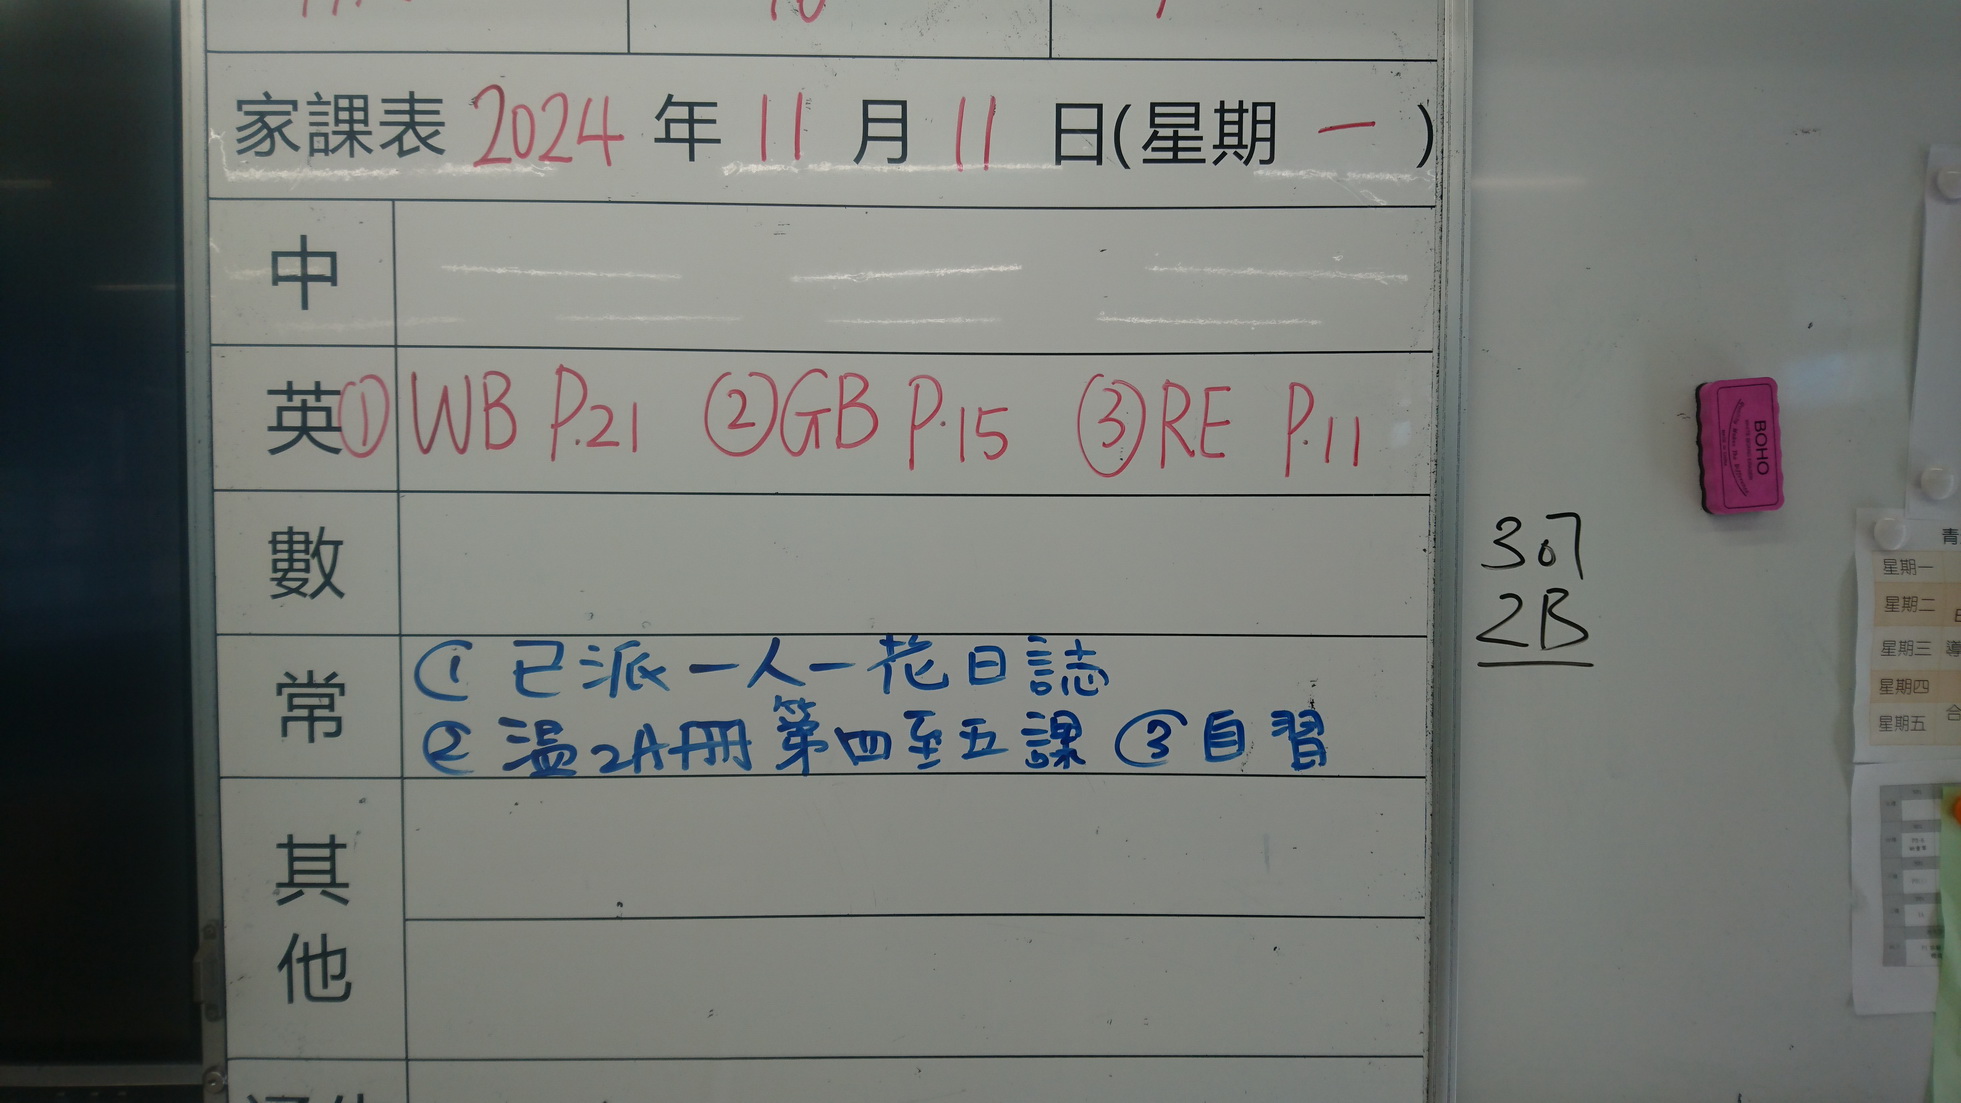 家課表 2024 年 11 月 11 日(星期 一 )
中
英 ① WB P.21 ② GB P.15 ③ RE P.11
數
常 ① 已派一人一花日誌
② 溫2A冊第四至五課 ③ 自習
其他
307
2B
BOHO
青
星期一
星期二
星期三 導
星期四
星期五 合